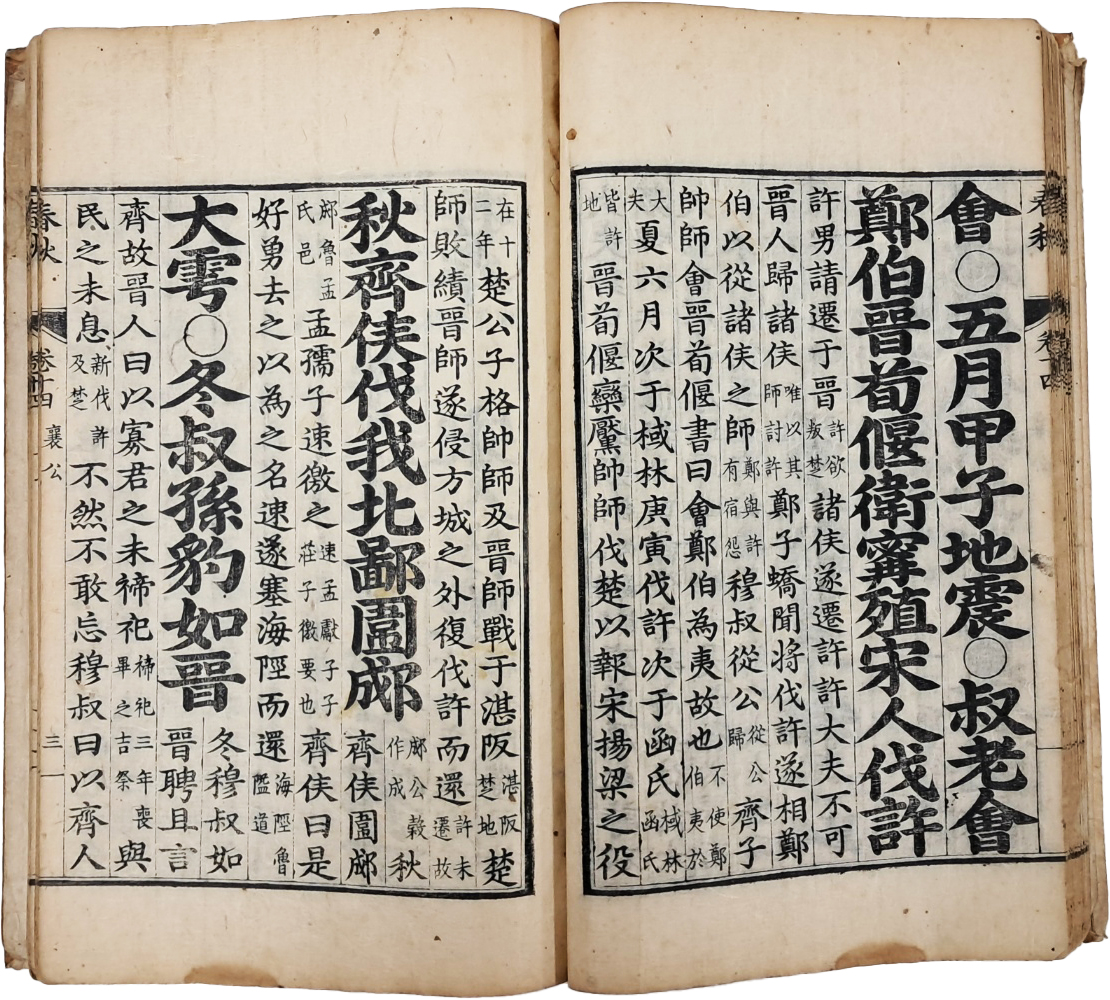 春秋 卷十四
會○五月甲子地震○叔老會
鄭伯晉荀偃衛甯殖宋人伐許
許男請遷于晉許欲叛楚諸侯遂遷許許大夫不可
晉人歸諸侯唯以其師討許鄭子蟜聞將伐許遂相鄭
伯以從諸侯之師鄭與許有宿怨穆叔從公從公歸齊子
帥師會晉荀偃書曰會鄭伯為夷故也不使鄭伯夷於
大夫夏六月次于棫林庚寅伐許次于函氏棫林函氏
皆許地晉荀偃欒黶帥師伐楚以報宋揚梁之役
在十二年楚公子格帥師及晉師戰于湛阪湛阪楚地楚
師敗績晉師遂侵方城之外復伐許而還許未遷故
秋齊侯伐我北鄙圍郕郕公穀作成秋齊侯圍郕
郕魯孟氏邑孟孺子速徼之速孟獻子子莊子徼要也齊侯曰是
好勇去之以為之名速遂塞海陘而還海陘魯隘道
大雩○冬叔孫豹如晉冬穆叔如晉聘且言
齊故晉人曰以寡君之未禘祀禘祀三年喪畢之吉祭與
民之未息新伐許及楚不然不敢忘穆叔曰以齊人
春秋 卷十四 襄公 三